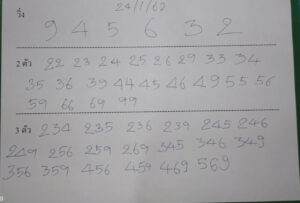 24/1/62
วิ่ง
9 4 5 6 3 2
2 ตัว 22 23 24 25 26 29 33 34
35 36 39 44 45 46 49 55 56
59 66 69 99
3 ตัว 234 235 236 239 245 246
249 256 259 269 345 346 349
356 359 456 459 469 569